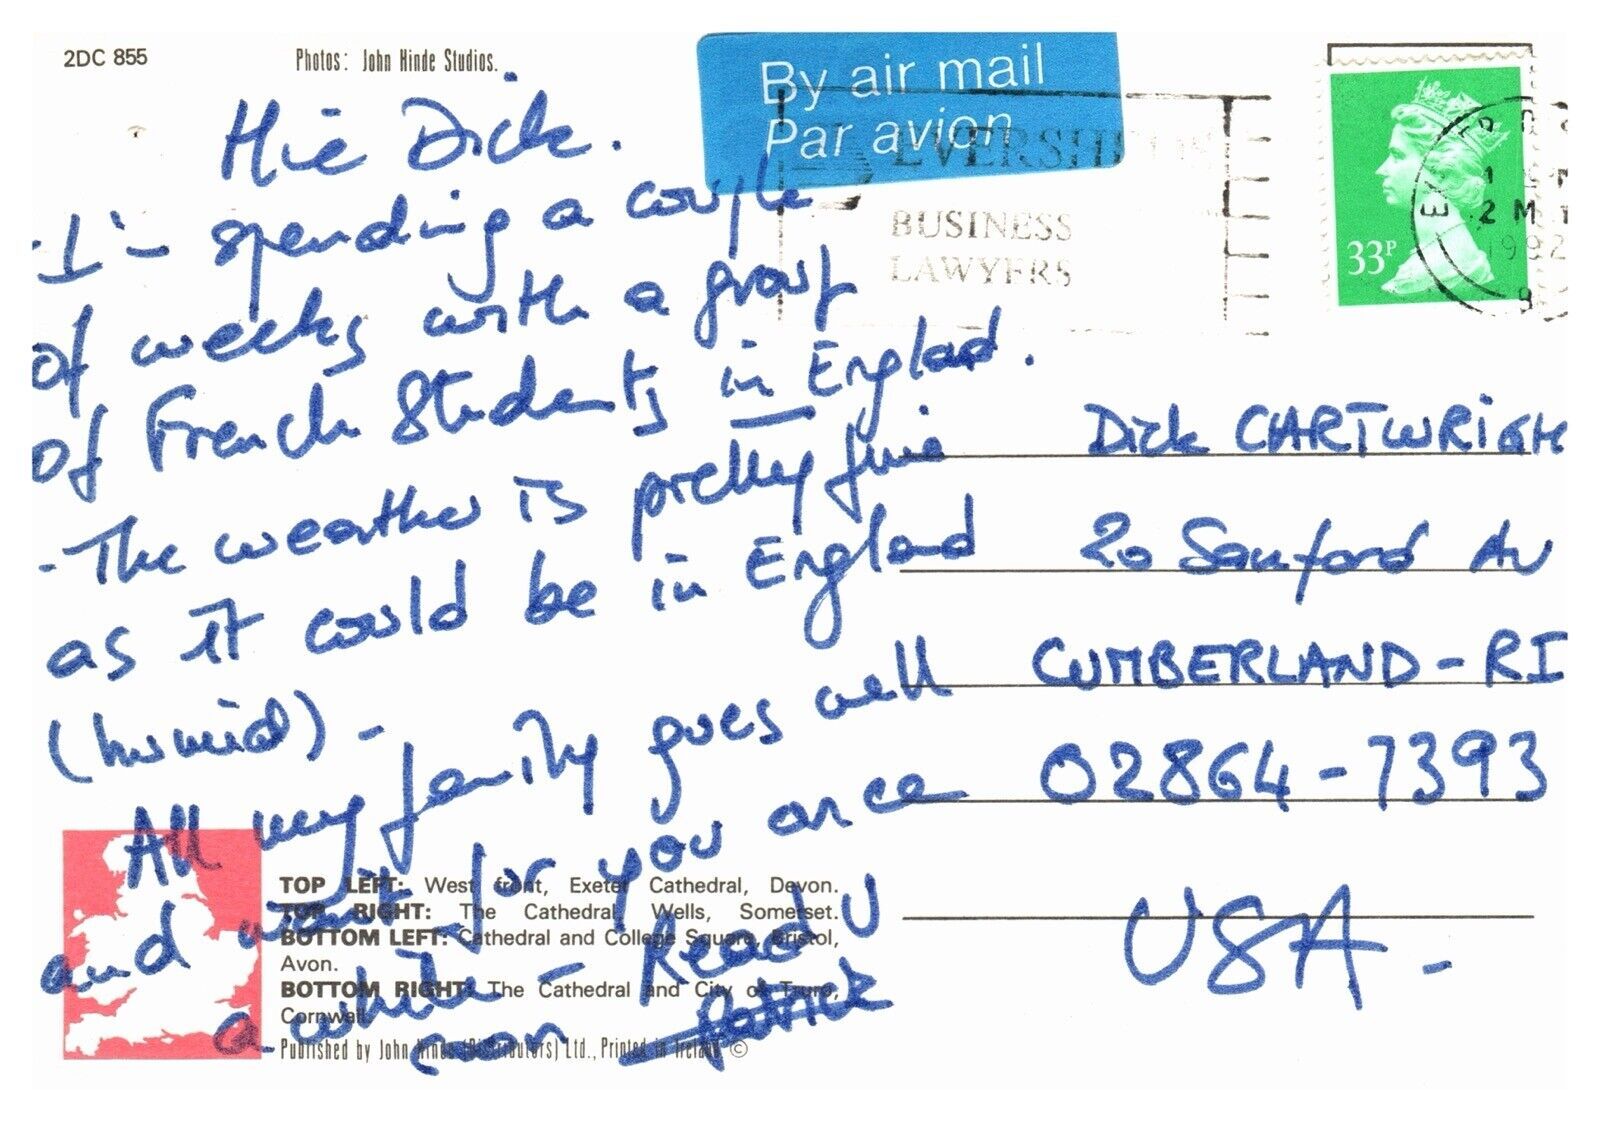 2DC 855
Photos: John Hinde Studios.
By air mail
Par avion
EVERSHEDS
BUSINESS
LAWYERS
33P
1992
Hie Dick.
- I'm spending a couple
of weeks with a group
of French Students in England.
- The weather is pretty fine
as it could be in England
(humid) -
All my family goes well
and wait for you once
a while - Read U
soon - Patrick
Dick CARTWRIGH
20 Sanford Av
CUMBERLAND - RI
02864-7393
USA -
TOP LEFT: West front, Exeter Cathedral, Devon.
TOP RIGHT: The Cathedral, Wells, Somerset.
BOTTOM LEFT: Cathedral and College Square, Bristol,
Avon.
BOTTOM RIGHT: The Cathedral and City of Truro,
Cornwall.
Published by John Hinde (Distributors) Ltd., Printed in Ireland ©